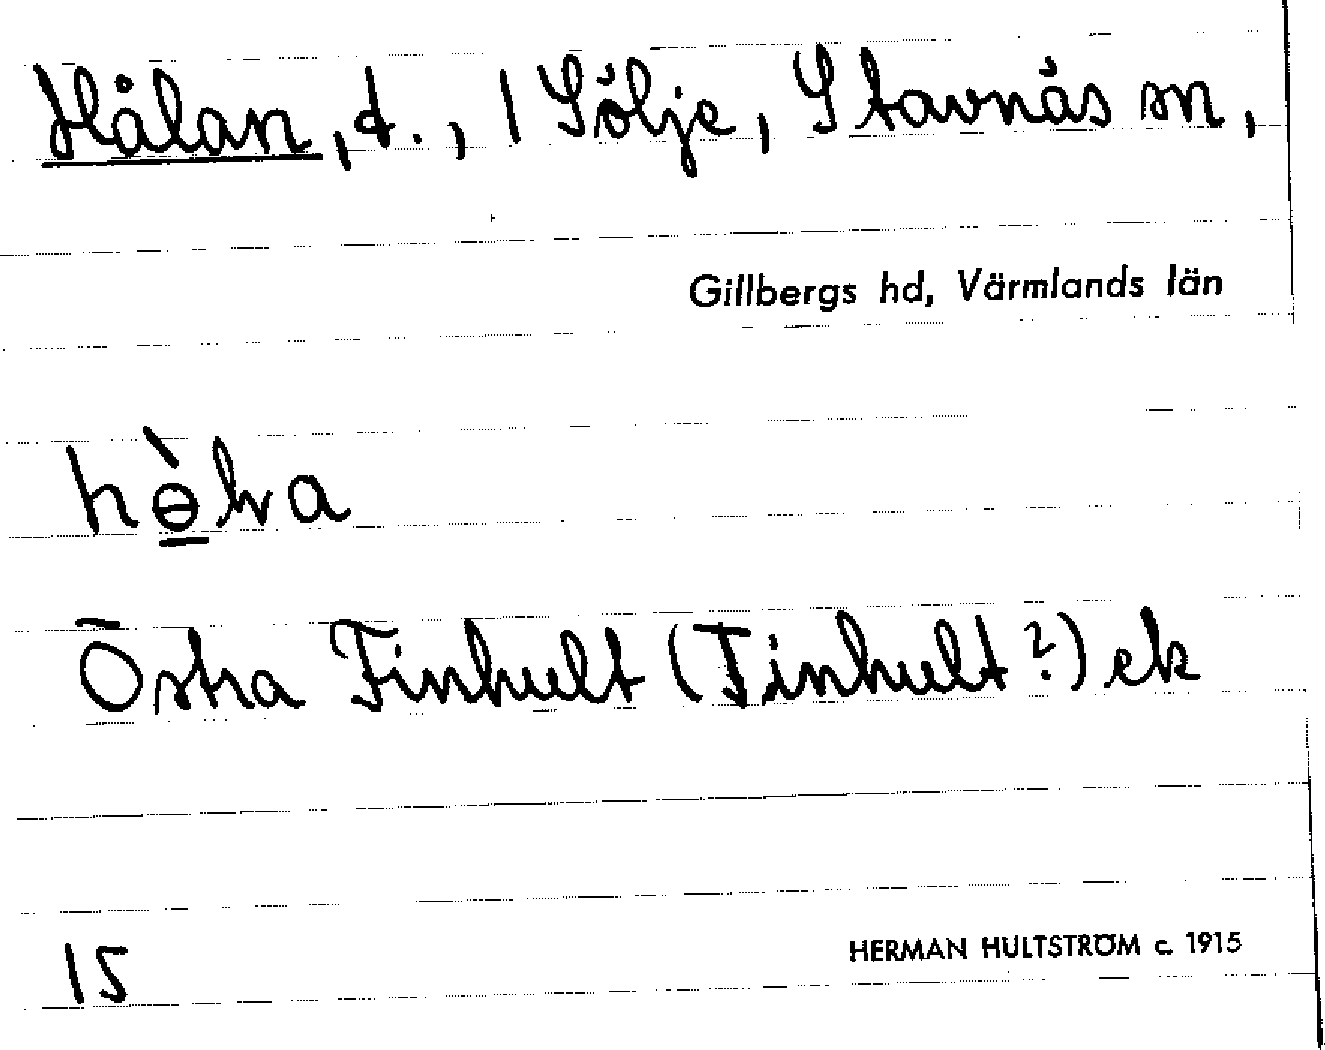 Hålan, t., 1 Sölje, Stavnäs sn,
Gillbergs hd, Värmlands län
hə̠̀lva
Östra Finhult (Tinhult?) ek
15
HERMAN HULTSTRÖM c. 1915